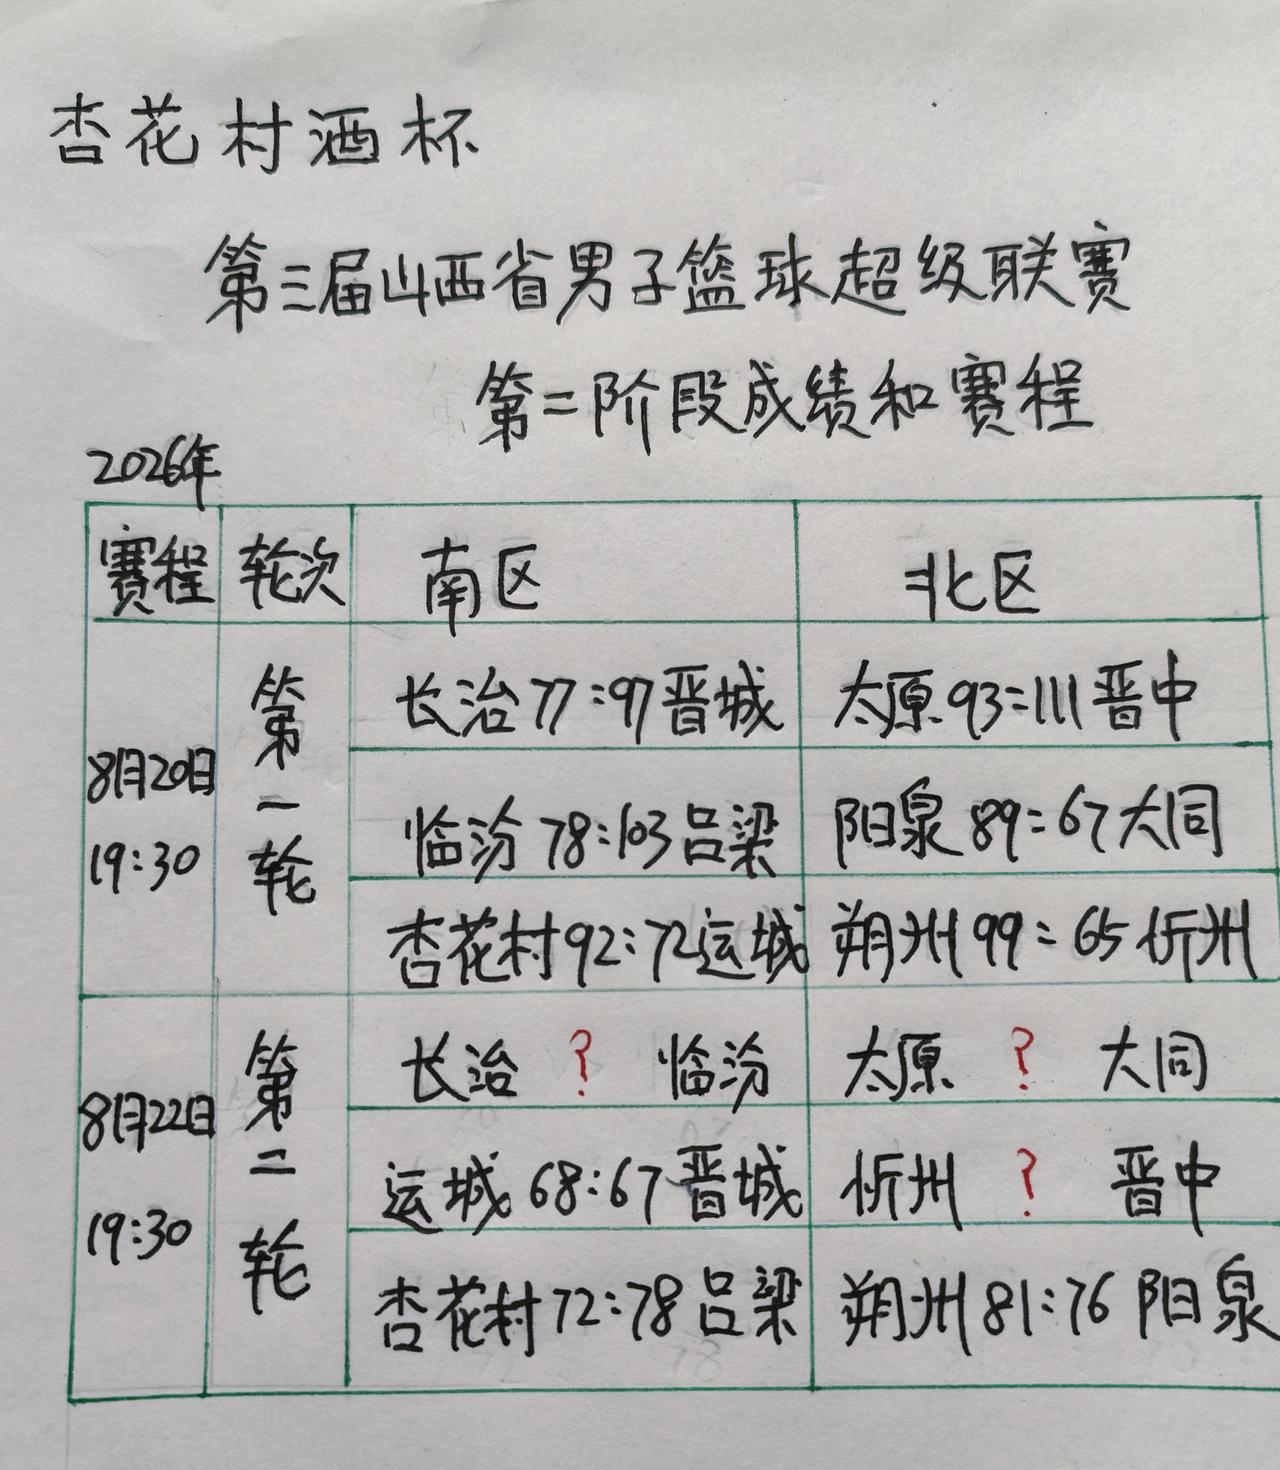 杏花村酒杯
第三届山西省男子篮球超级联赛
第二阶段成绩和赛程
2026年
赛程 轮次 南区 北区
8月20日 19:30 第一轮
长治 77:97 晋城 太原 93:111 晋中
临汾 78:103 吕梁 阳泉 89:67 大同
杏花村 92:72 运城 朔州 99:65 忻州
8月22日 19:30 第二轮
长治 ? 临汾 太原 ? 大同
运城 68:67 晋城 忻州 ? 晋中
杏花村 72:78 吕梁 朔州 81:76 阳泉